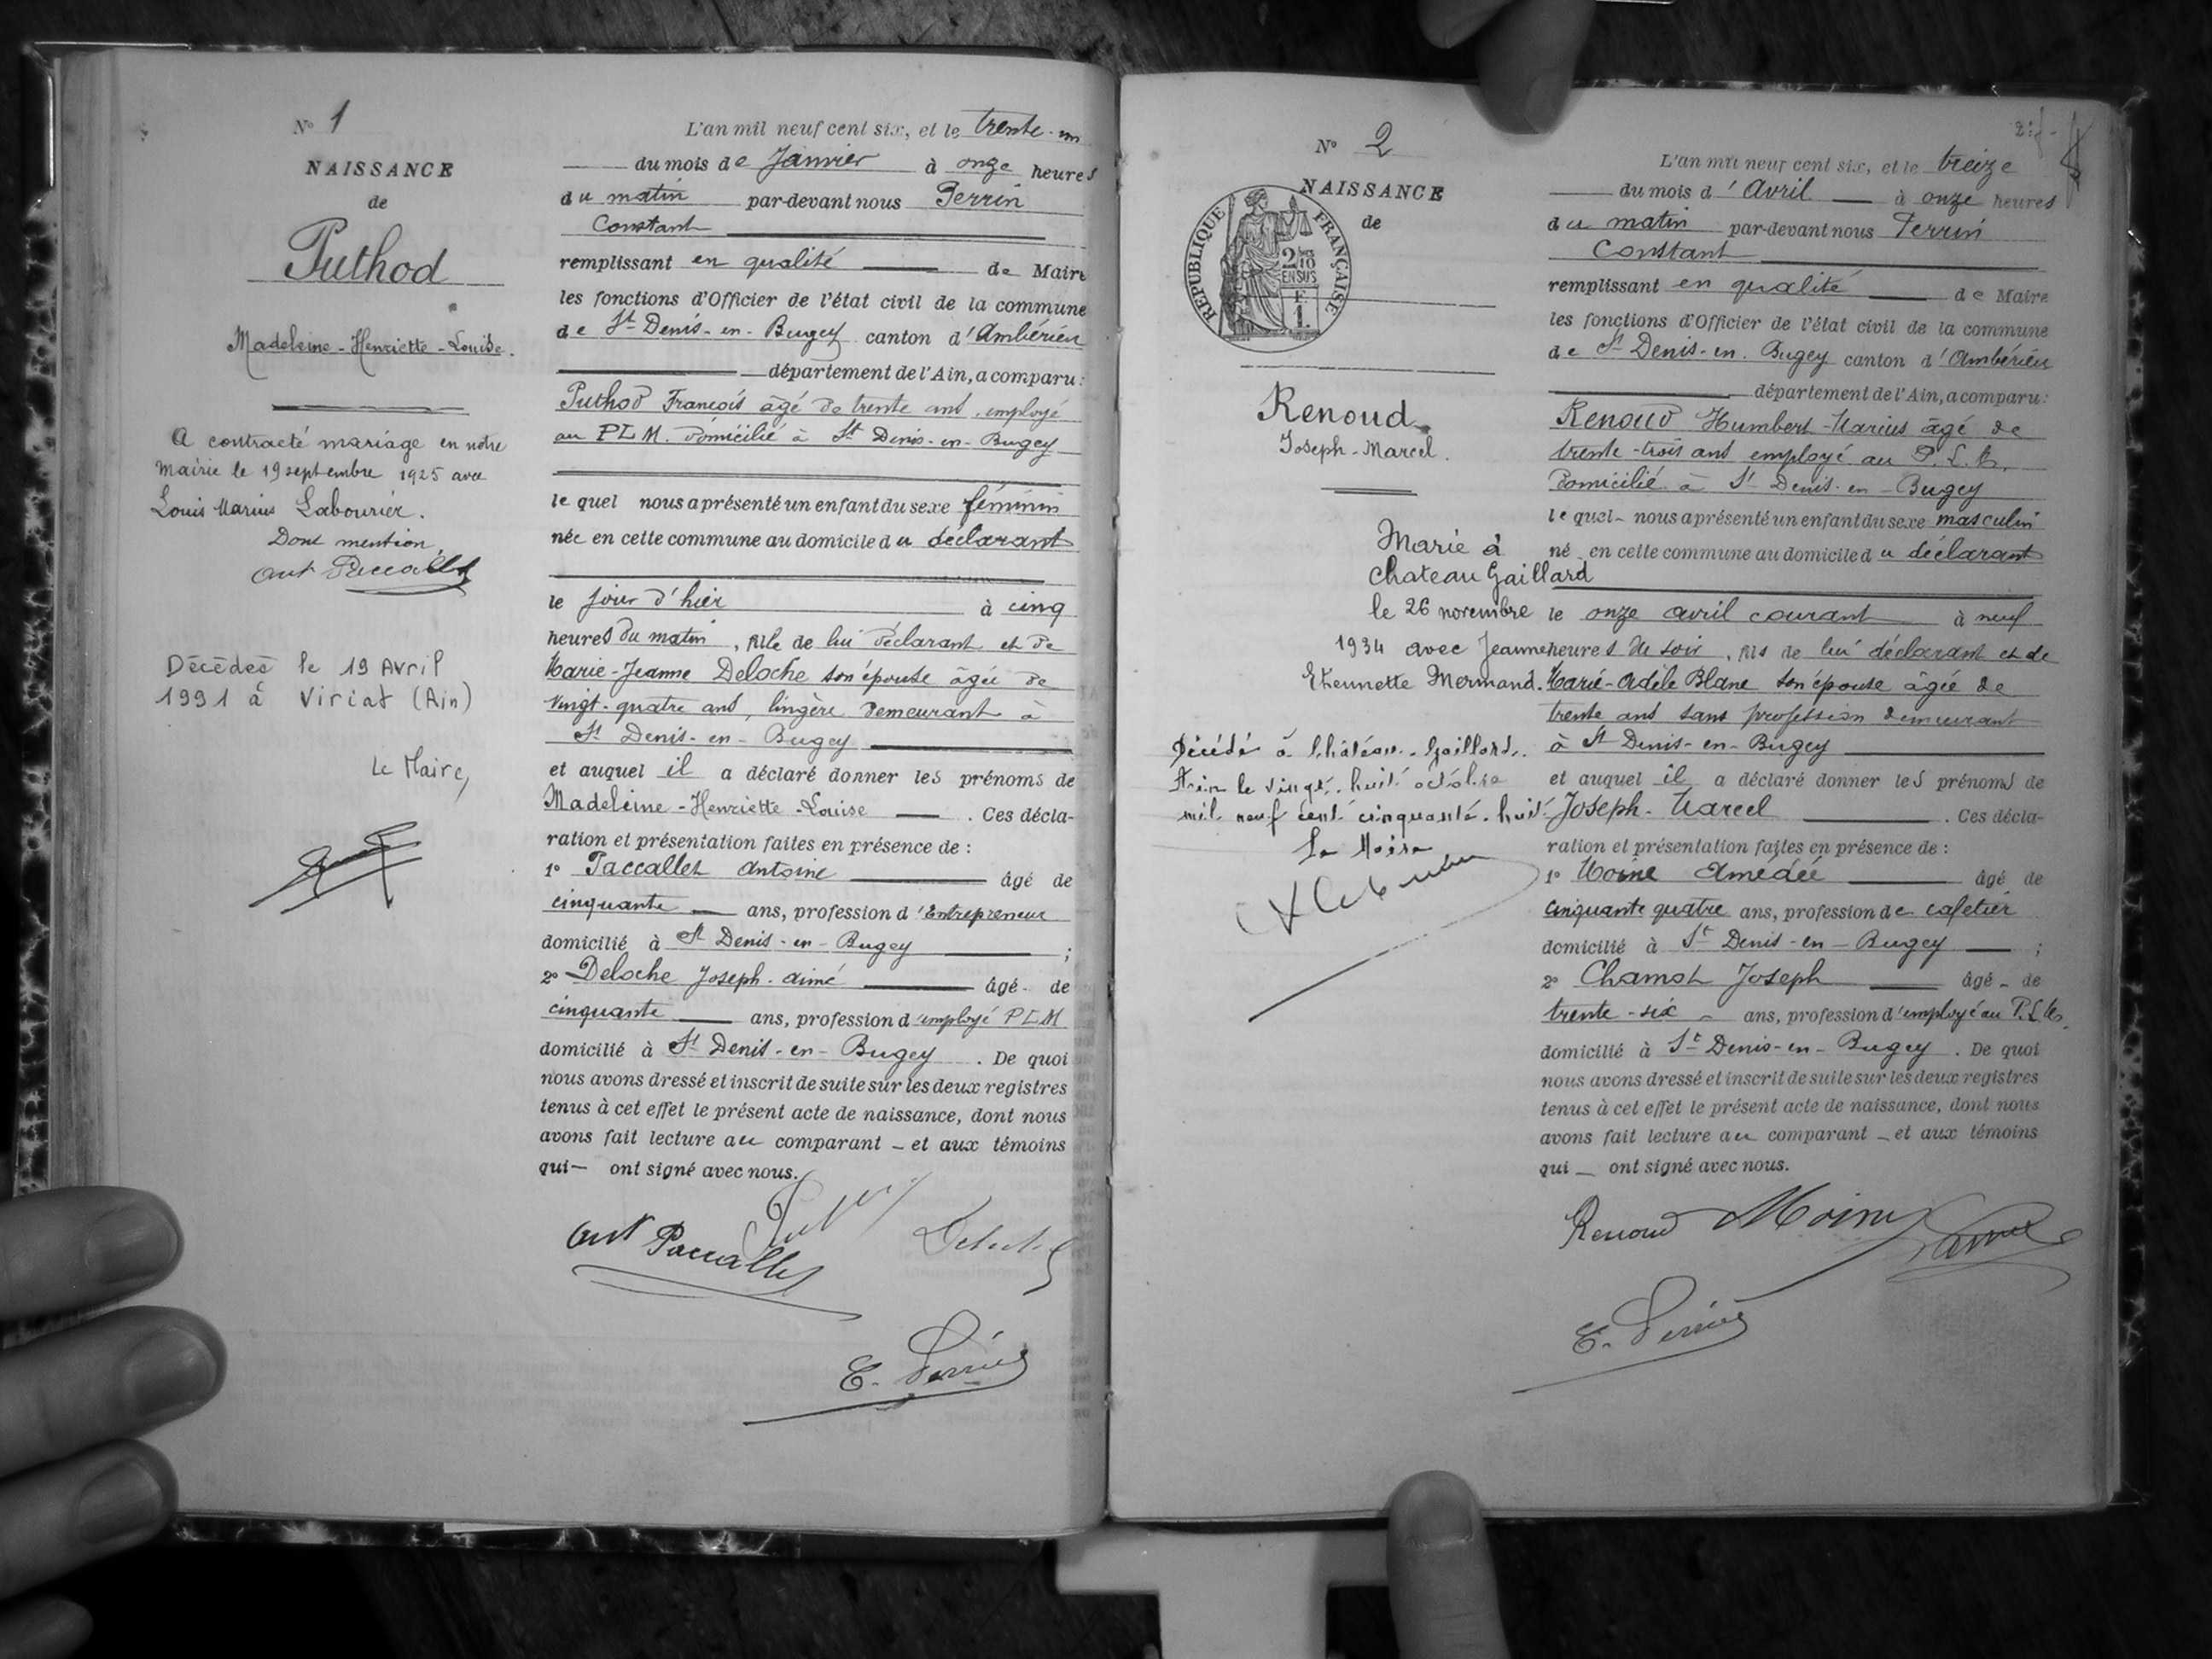 N° 1
NAISSANCE
de
Puthod
Madeleine-Henriette-Louise.
A contracté mariage en notre
Mairie le 19 septembre 1925 avec
Louis Marius Labourier.
Dont mention,
Ant Paccallet
Décédée le 19 Avril
1991 à Viriat (Ain)
Le Maire,
L'an mil neuf cent six, et le trente-un
du mois de Janvier à onze heures
du matin par-devant nous Perrin
Constant
remplissant en qualité de Maire
les fonctions d'Officier de l'état civil de la commune
de St Denis-en-Bugey canton d'Ambérieu
département de l'Ain, a comparu:
Puthod François âgé de trente ans, employé
au PLM. domicilié à St Denis-en-Bugey
le quel nous a présenté un enfant du sexe féminin
née en cette commune au domicile du déclarant
le jour d'hier à cinq
heures du matin, fille de lui déclarant et de
Marie-Jeanne Deloche son épouse âgée de
vingt-quatre ans, lingère demeurant à
St Denis-en-Bugey
et auquel il a déclaré donner les prénoms de
Madeleine-Henriette-Louise. Ces décla-
ration et présentation faites en présence de :
1° Paccallet Antoine âgé de
cinquante ans, profession d'Entrepreneur
domicilié à St Denis-en-Bugey ;
2° Deloche Joseph-aimé âgé de
cinquante ans, profession d'employé PLM
domicilié à St Denis-en-Bugey. De quoi
nous avons dressé et inscrit de suite sur les deux registres
tenus à cet effet le présent acte de naissance, dont nous
avons fait lecture au comparant et aux témoins
qui ont signé avec nous.
Ant Paccallet
E. Perrin
N° 2
NAISSANCE
de
REPUBLIQUE FRANÇAISE
2/10
EN SUS
F.
1.
Renoud
Joseph-Marcel.
Marié à
Chateau Gaillard
le 26 novembre
1934 avec Jeanne
Etiennette Mermand.
Décédé à Château-Gaillard.
Ain le vingt-huit octobre
mil neuf cent cinquante-huit.
Le Maire
L'an mil neuf cent six, et le treize
du mois d'Avril à onze heures
du matin par-devant nous Perrin
Constant
remplissant en qualité de Maire
les fonctions d'Officier de l'état civil de la commune
de St Denis-en-Bugey canton d'Ambérieu
département de l'Ain, a comparu:
Renoud Humbert-Marius âgé de
trente-trois ans employé au P.L.M.
domicilié à St Denis-en-Bugey
le quel nous a présenté un enfant du sexe masculin
né en cette commune au domicile du déclarant
le onze avril courant à neuf
heures du soir, fils de lui déclarant et de
Marie-Adèle Blanc son épouse âgée de
trente ans sans profession demeurant
à St Denis-en-Bugey
et auquel il a déclaré donner les prénoms de
Joseph-Marcel. Ces décla-
ration et présentation faites en présence de :
1° Moine Amédée âgé de
cinquante quatre ans, profession de cafetier
domicilié à St Denis-en-Bugey ;
2° Chamot Joseph âgé de
trente-six ans, profession d'employé au P.L.M.
domicilié à St Denis-en-Bugey. De quoi
nous avons dressé et inscrit de suite sur les deux registres
tenus à cet effet le présent acte de naissance, dont nous
avons fait lecture au comparant et aux témoins
qui ont signé avec nous.
Renoud Moine
E. Perrin